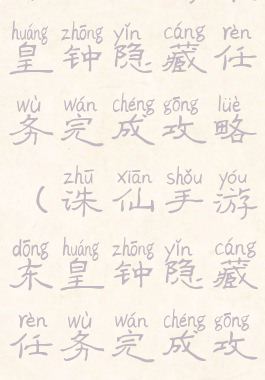 huáng zhōng yǐn cáng rèn
皇钟隐藏任
wù wán chéng gōng lüè
务完成攻略
zhū xiān shǒu yóu
（诛仙手游
dōng huáng zhōng yǐn cáng
东皇钟隐藏
rèn wù wán chéng gōng
任务完成攻